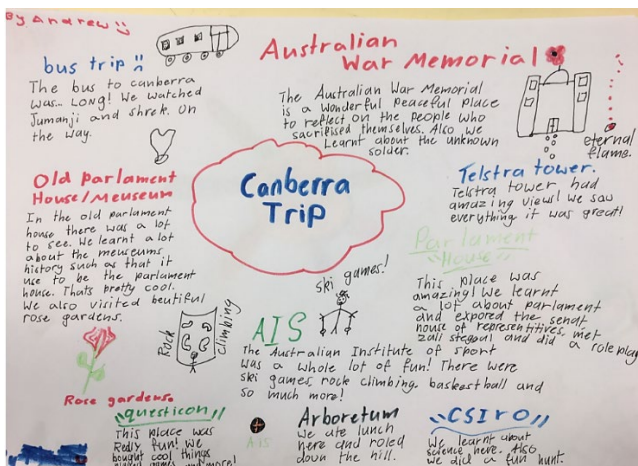 By Andrew
bus trip
The bus to canberra
was... LONG! We watched
Jumanji and shrek. On
the way.
Australian
War Memorial
The Australian War Memorial
is a wonderful peaceful place
to reflect on the people who
sacrifised themselves. Also we
Learnt about the unknown
solder.
eternal
flame.
Old parlament
House/Meuseum
In the old parlament
house there was a lot
to see. We learnt a lot
about the meuseums
history such as that it
use to be the parlament
house. Thats pretty cool.
We also visited beutiful
rose gardens.
Rose gardens.
Canberra
Trip
Telstra tower.
Telstra tower, had
amazing view! We saw
everything it was great!
Parlament
House
This place was
amazing! We learnt
a lot about parlament
and expored the senat,
house of representitives, met
zali steggul and did a roleplay
ski games!
Rock
climbing
AIS
The Australian Institute of sport
was a whole lot of fun! There were
ski games, rock climbing, basketball and
so much more!
questicon
This place was
Redly fun! We
bought cool things
games and more!
AIS
Arboretum
We ate lunch
here and roled
down the hill.
CSIRO
We learnt about
science here. Also
we did a fun hunt.